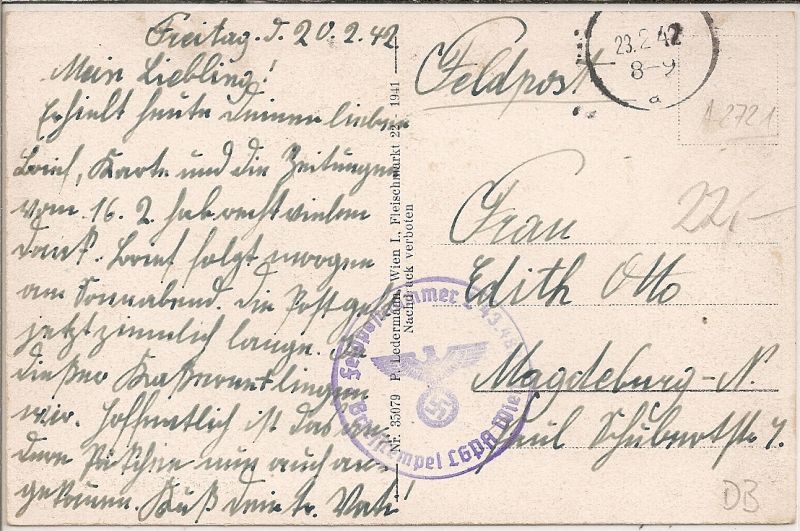 Freitag. d. 20.2.42
Mein Liebling!
Erhielt heute Deinen lieben
Brief, Karte und die Zeitungen
vom 16.2 hab recht vielen
Dank. Brief folgt morgen
am Sonnabend. Die Post geht
jetzt ziemlich lange. In
dießer Kaßerne liegen
wir. Hoffentlich ist das an-
dere Päkchen nun auch an-
gekommen. Kuß dein tr. Vati!
Nr. 35079 P. Ledermann, Wien I., Fleischmarkt 22 1941
Nachdruck verboten
Feldpost
23.2.42
8-9
a
A 2721
22,-
Frau
Edith Otto
Magdeburg-N.
Paul Schubertstr.
Feldpostnummer L 43.48
Briefstempel LGPA Wien
DB